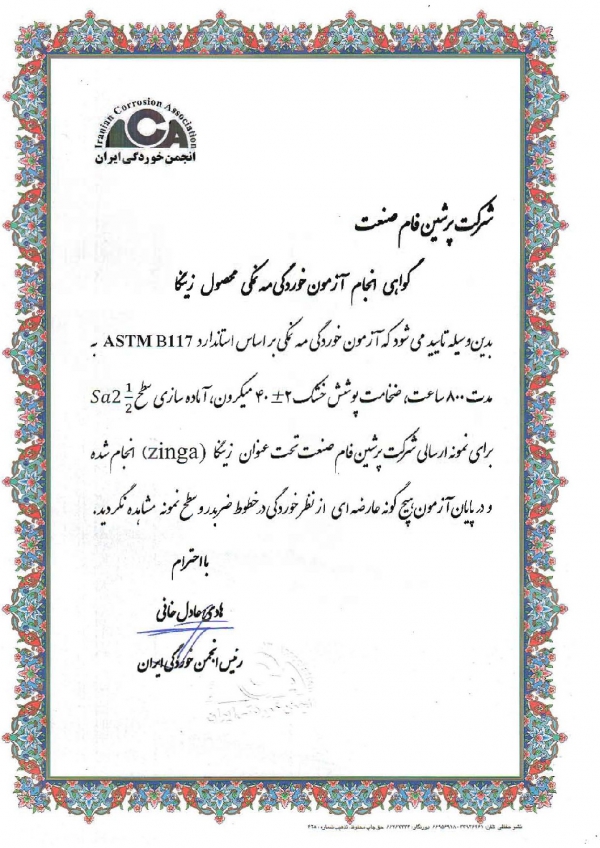 Iranian Corrosion Association
ICA
انجمن خوردگی ایران
شرکت پرشین فام صنعت
گواهی انجام آزمون خوردگی مه نمکی محصول زینگا
بدین وسیله تایید می شود که آزمون خوردگی مه نمکی بر اساس استاندارد ASTM B117 به
مدت ۸۰۰ ساعت، ضخامت پوشش خشک ۲±۴۰ میکرون، آماده سازی سطح Sa2 1/2
برای نمونه ارسالی شرکت پرشین فام صنعت تحت عنوان زینگا (zinga) انجام شده
و در پایان آزمون هیچ گونه عارضه ای از نظر خوردگی در خطوط ضربدر و سطح نمونه مشاهده نگردید.
با احترام
هادی عادل خانی
رئیس انجمن خوردگی ایران
انجمن خوردگی ایران